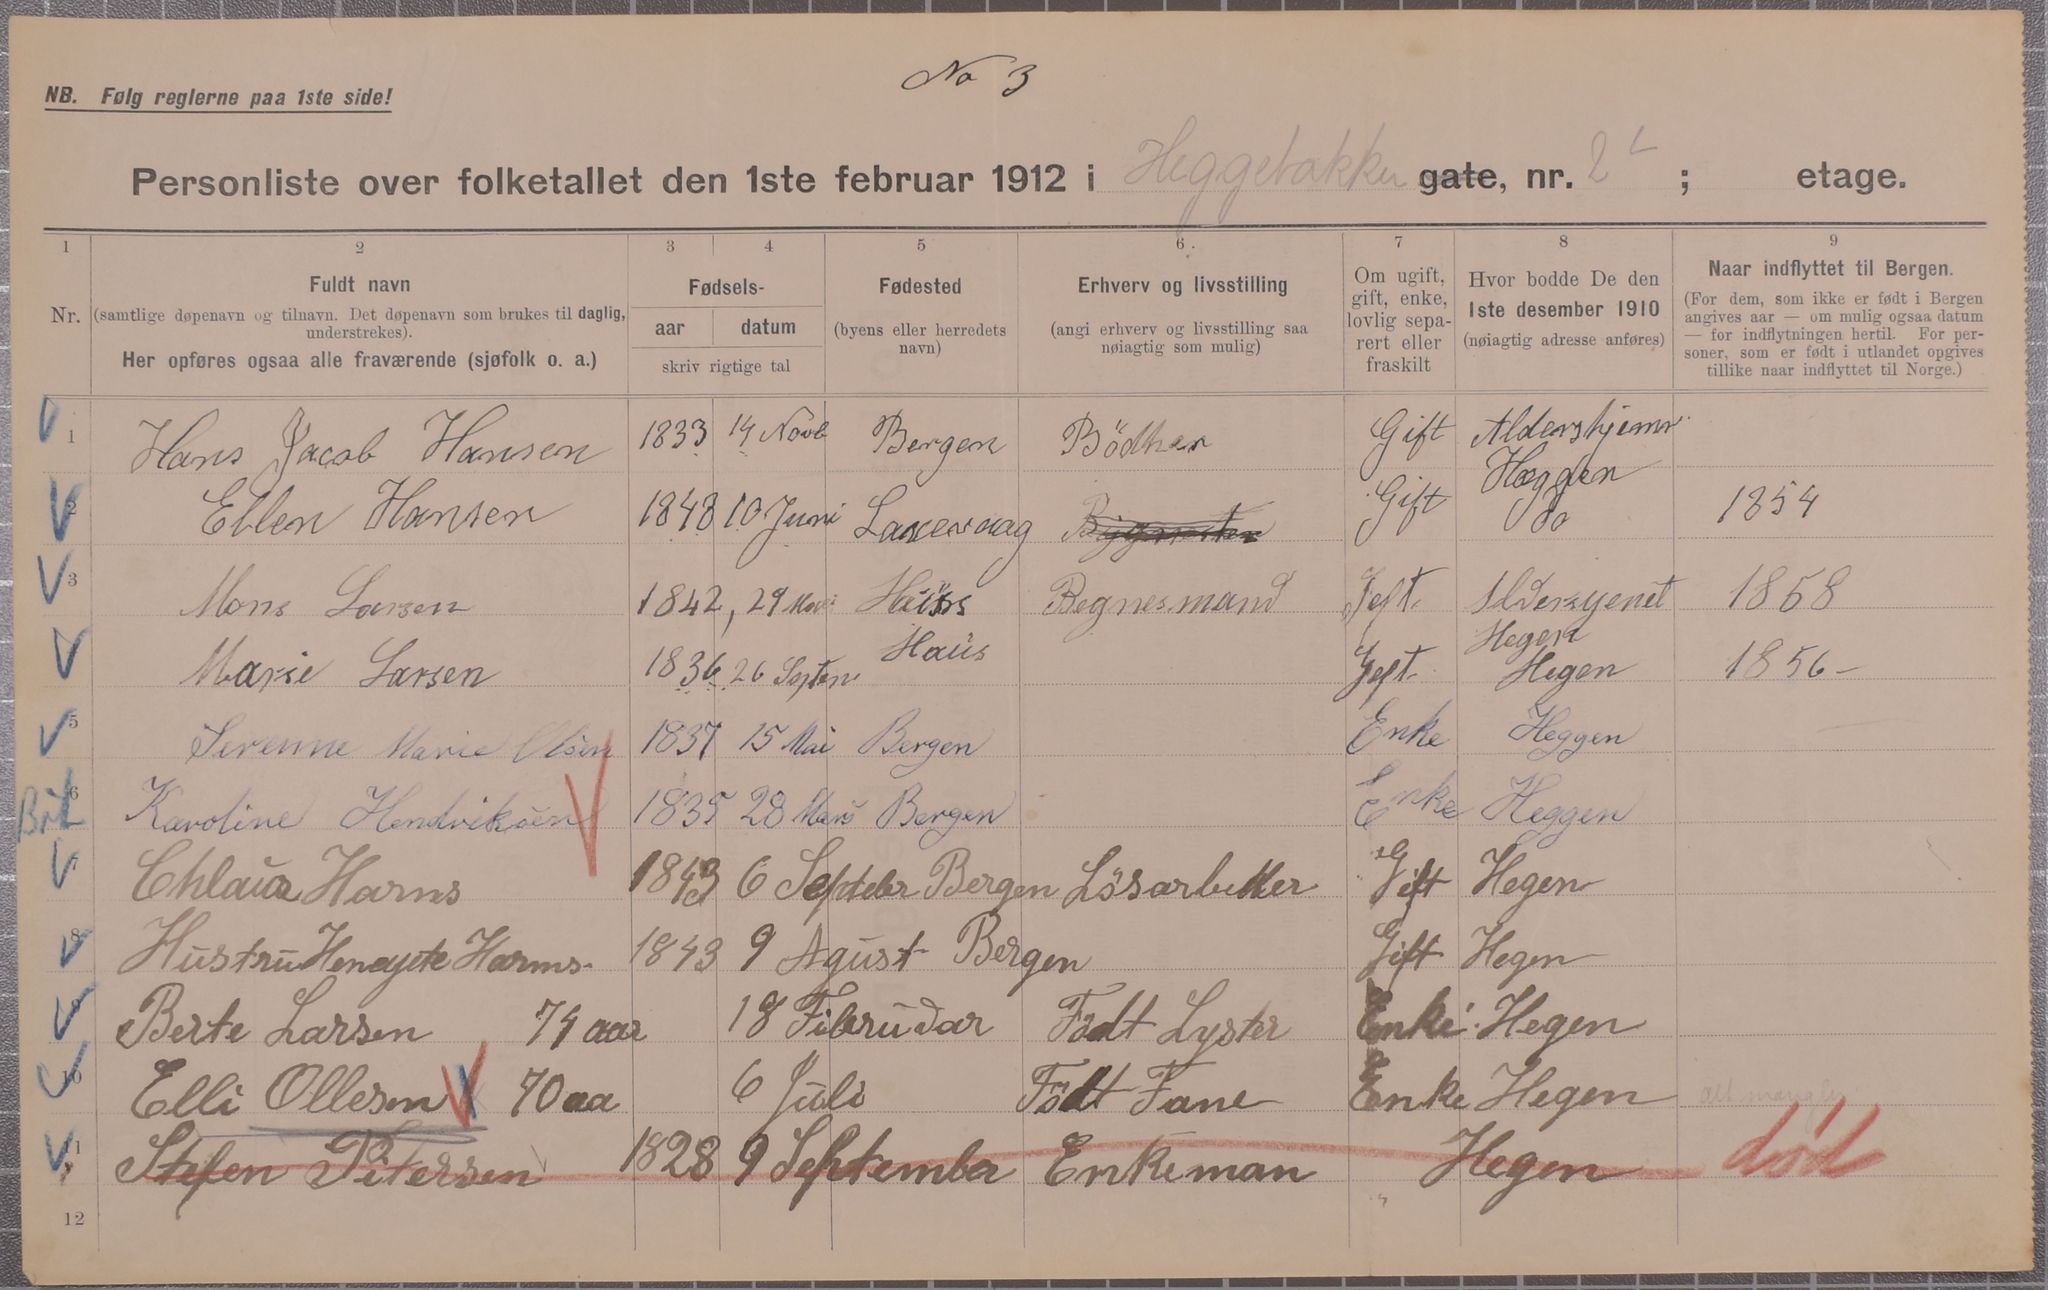 No 3
NB. Følg reglerne paa 1ste side!
Personliste over folketallet den 1ste februar 1912 i Heggebakken gate, nr. 2 L ; etage.
1 2 3 4 5 6. 7 8 9
Nr.
Fuldt navn
(samtlige døpenavn og tilnavn. Det døpenavn som brukes til daglig,
understrekes).
Her opføres ogsaa alle fraværende (sjøfolk o. a.)
Fødsels-
aar datum
skriv rigtige tal
Fødested
(byens eller herredets
navn)
Erhverv og livsstilling
(angi erhverv og livsstilling saa
nøiagtig som mulig)
Om ugift,
gift, enke,
lovlig sepa-
rert eller
fraskilt
Hvor bodde De den
1ste desember 1910
(nøiagtig adresse anføres)
Naar indflyttet til Bergen.
(For dem, som ikke er født i Bergen
angives aar — om mulig ogsaa datum
— for indflytningen hertil. For per-
soner, som er født i utlandet opgives
tillike naar indflyttet til Norge.)
1 Hans Jacob Hansen 1833 14 Novb Bergen Bödker Gift Aldershjemr
Heggen
2 Ellen Hansen 1848 10 Juni Laxevaag Gift Do 1854
3 Mons Larsen 1842, 29 Haus Begnesmand Geft. 1858
Hegen
Marie Larsen 1836 26 Septen Haus Geft. Hegen 1856 –
5 Serenne Marie Olsen 1837 15 Mai Bergen Enke Heggen
Brt 6 Karoline Hendriksen 1835 28 Mars Bergen Enke Heggen
7 Chlaus Harms 1843 6 Septebr Bergen Lösarbeider Gift Hegen
8 Hustru Harms 1843 9 Agust Bergen Gift Hegen
9 Berte Larsen 74 aar 18 Februdar Födt Lyster Enke Hegen
10 Elli Ollesen 70 aa 6 Juli Födt Fane Enke Hegen
11 Stefen Pitersen 1828 9 September Enkeman Hegen død
12